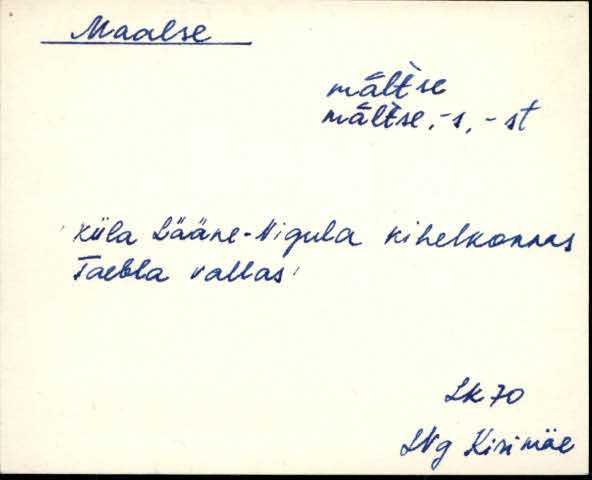 Maalse
māl̄t̀se
māl̄t̀se, -s, -st
'küla Lääne-Nigula kihelkonnas
Taebla vallas'
LK 70
LNg Kirimäe